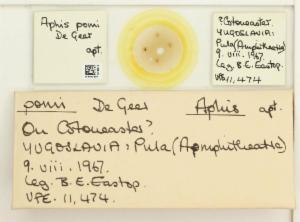 Aphis pomi
De Geer
apt.
?Cotoneaster.
YUGOSLAVIA:
Pula (Amphitheatre)
9. viii. 1967.
Leg. B.E. Eastop.
VPE. 11,474
pomi De Geer Aphis apt.
On Cotoneaster?
YUGOSLAVIA: Pula (Apmphitheatre)
9. viii. 1967.
Leg. B.E. Eastop.
VPE. 11,474.